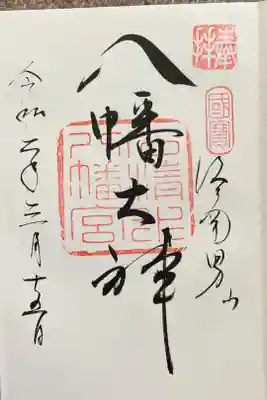 奉拝
國寶
洛南男山
八幡大神
石清水八幡宮
令和二年三月十五日